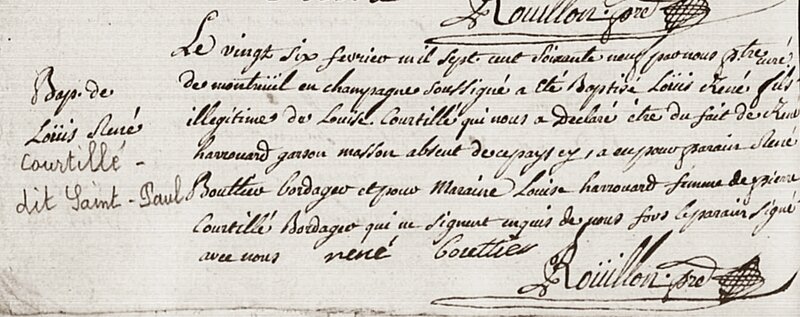 Roüillon. pre
Le vingt six fevrier mil sept cent Soixante neuf par nous ptre curé
de montreüil en champagne soussigné a eté Baptisé Loüis René fils
illegitime de Louise Courtillé qui nous a Declaré être du fait de René
harrouard garson masson absent de ce pays cy, a eu pour parain René
Bouttier bordager et pour Maraine Louise harrouard femme de pierre
Courtillé Bordager qui ne signent enquis de nous fors le parain signé
avec nous rené bouttier
Roüillon. pre
Bap. de
Loüis René
Courtillé -
dit Saint-Paul